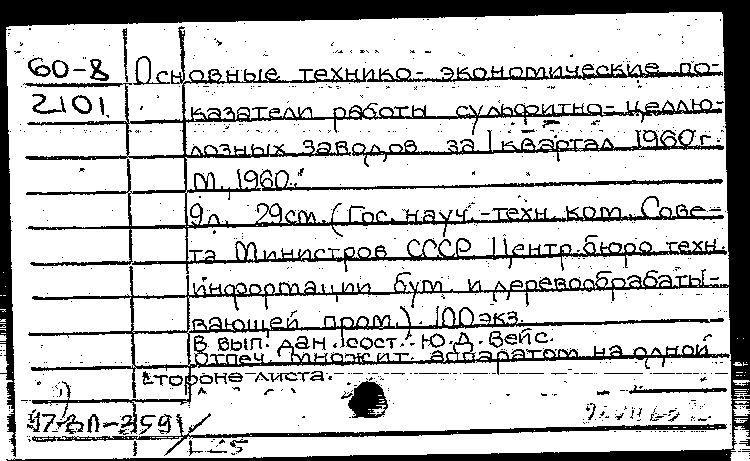 60-8 Основные технико-экономические по-
2101 казатели работы сульфитно-целлю-
лозных заводов за I квартал 1960г.
М., 1960.
9л. 29см. (Гос. науч.-техн. ком. Сове-
та Министров СССР Центр. бюро техн.
информации бум. и деревообрабаты-
вающей пром.) 100экз.
В вып. дан. сост.: Ю.Д. Вейс.
Отпеч. множит. аппаратом на одной
стороне листа.